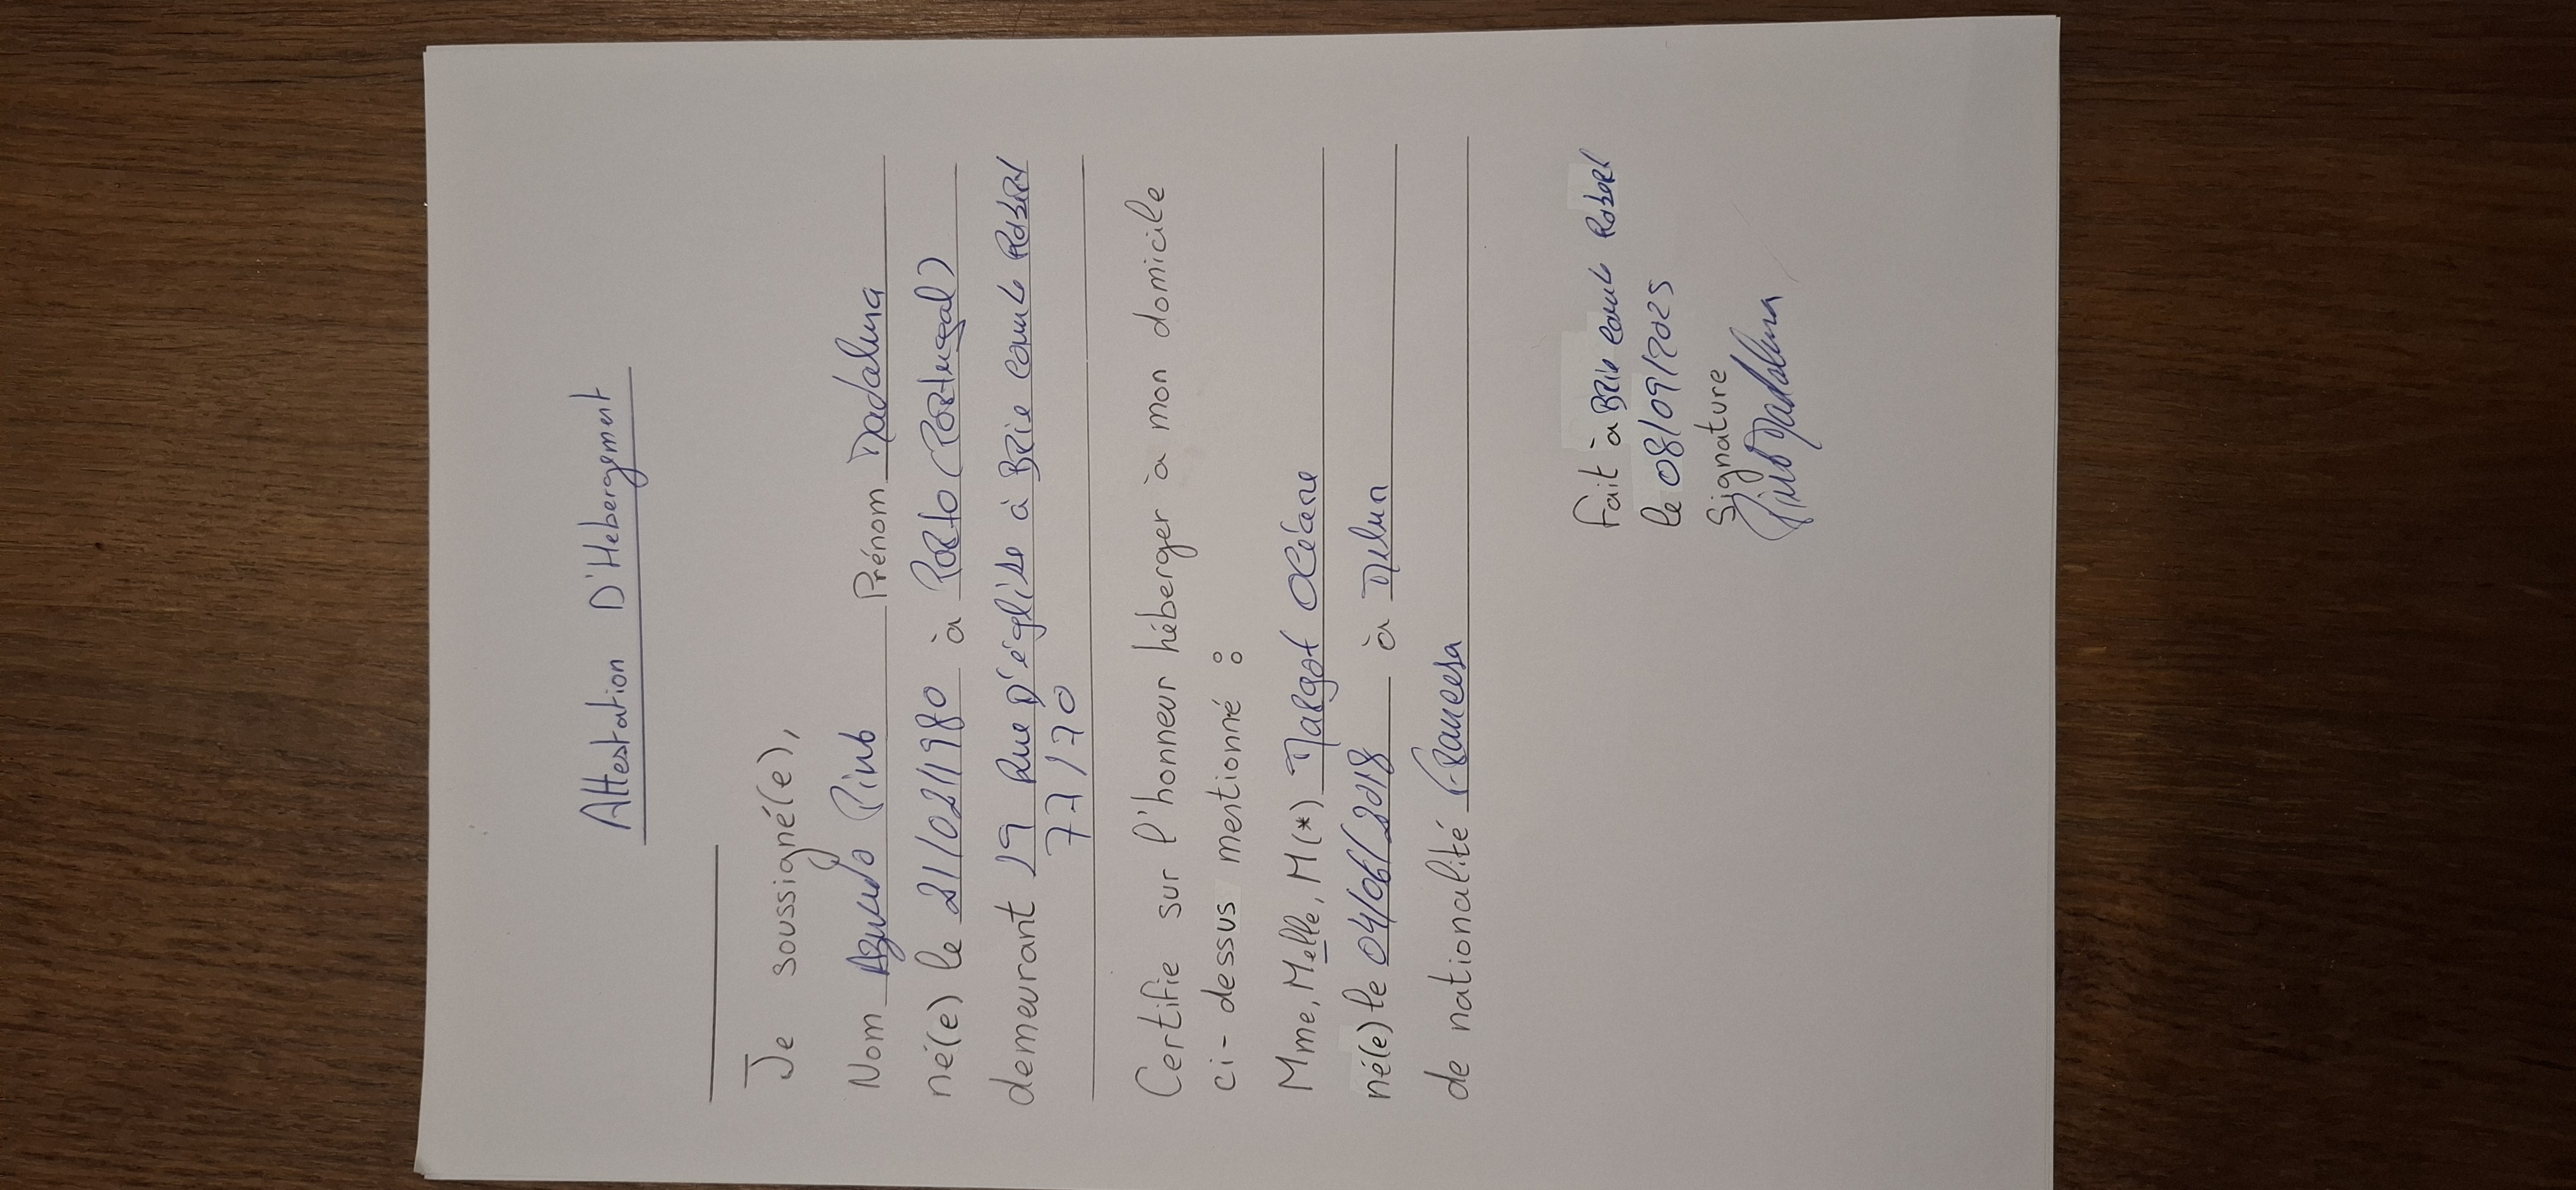 Attestation D'Hebergement
Je soussigné(e),
Nom Azevedo Pinto Prénom Madalena
né(e) le 21/02/1980 à Porto (Portugal)
demeurant 19 Rue D'église à Brie Comte Robert
77170
Certifie sur l'honneur héberger à mon domicile
ci-dessus mentionné :
Mme, Melle, M(*) Margot Océane
né(e) le 04/06/2018 à Melun
de nationalité
Fait à Brie Comte Robert
le 08/09/2025
Signature
Pinto Madalena